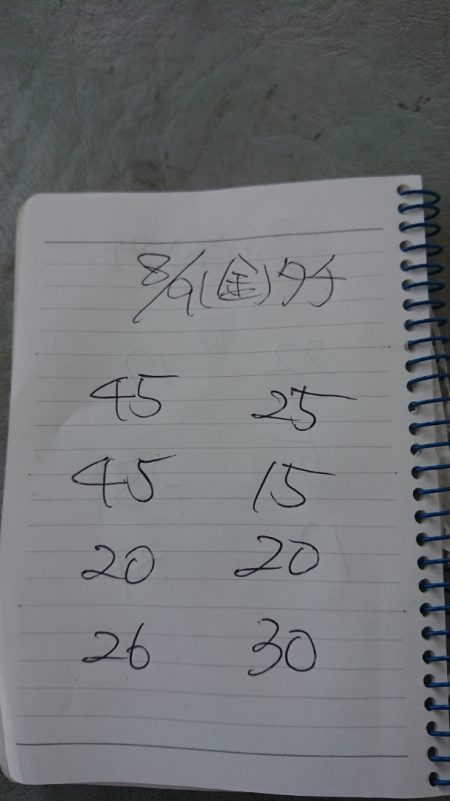 8/9(金)タチ
45 25
45 15
20 20
26 30